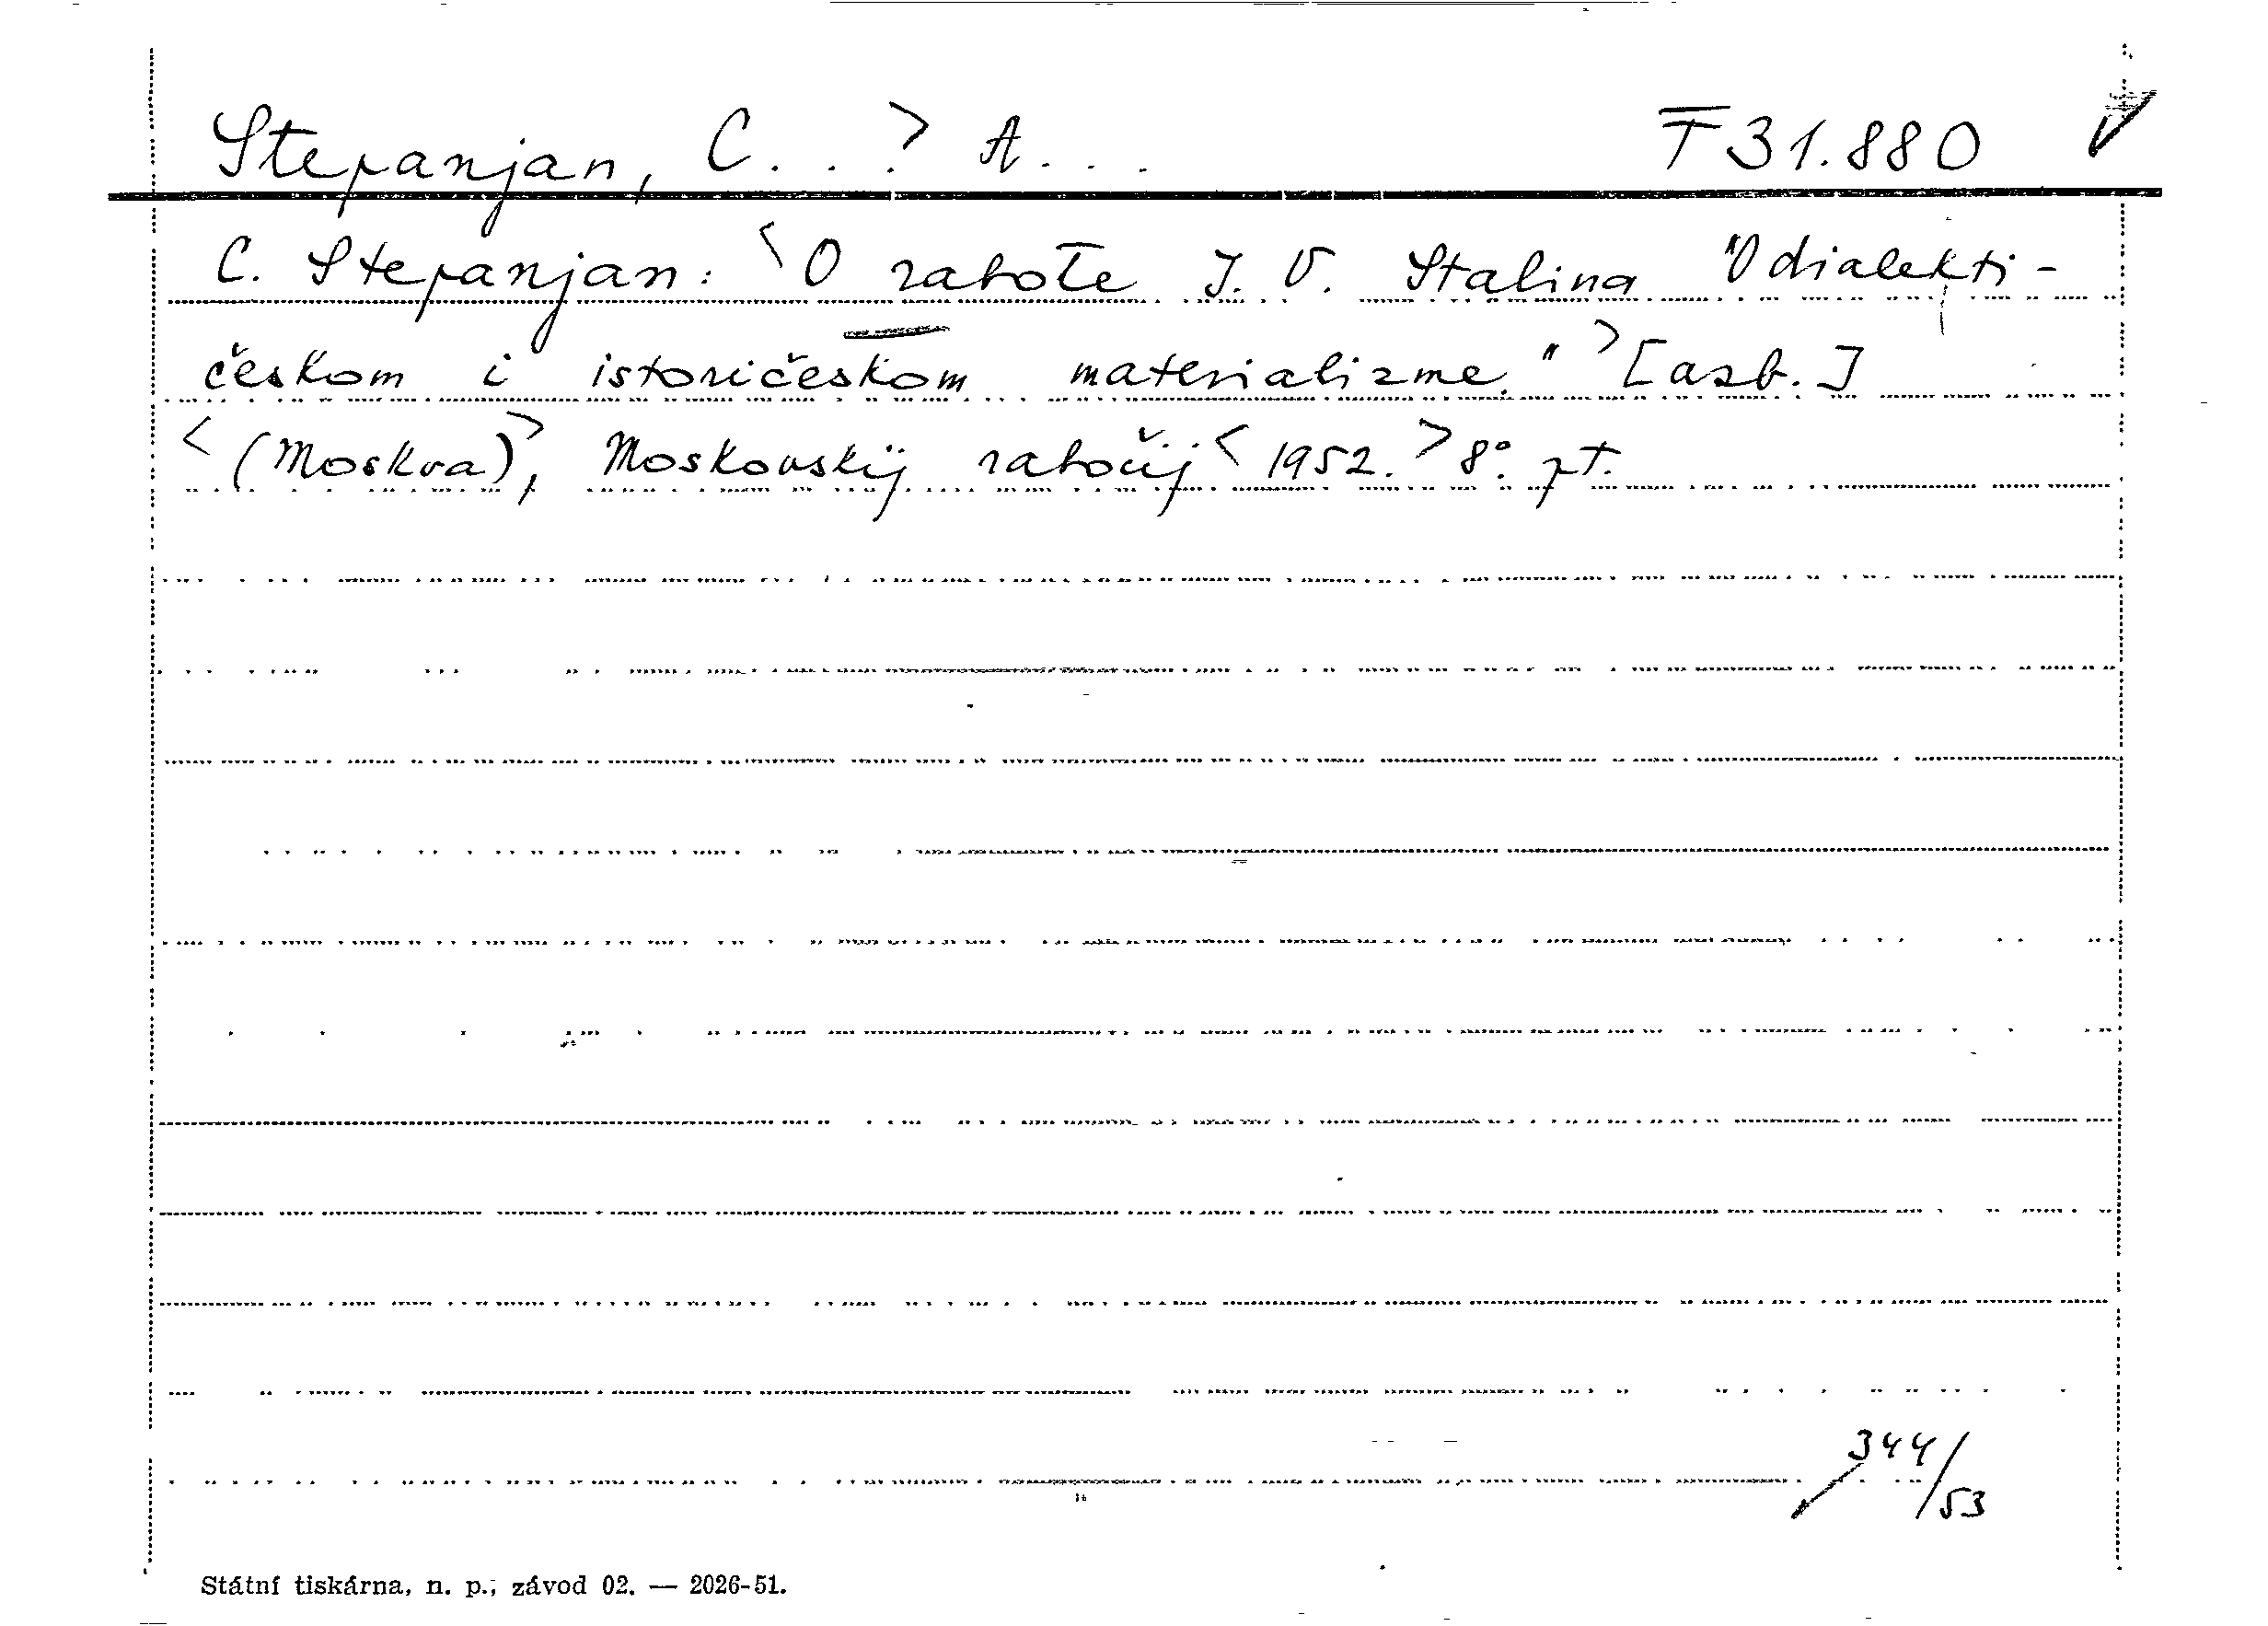 Stepanjan, C. . . ? A. . . F 31.880
C. Stepanjan: O rabote J. V. Stalina "O dialekti-
českom i istoričeskom materializme." > [azb.]
< (Moskva) >, Moskovskij rabočij < 1952. > 8°. pt.
344/53
Státní tiskárna, n. p., závod 02. — 2026-51.